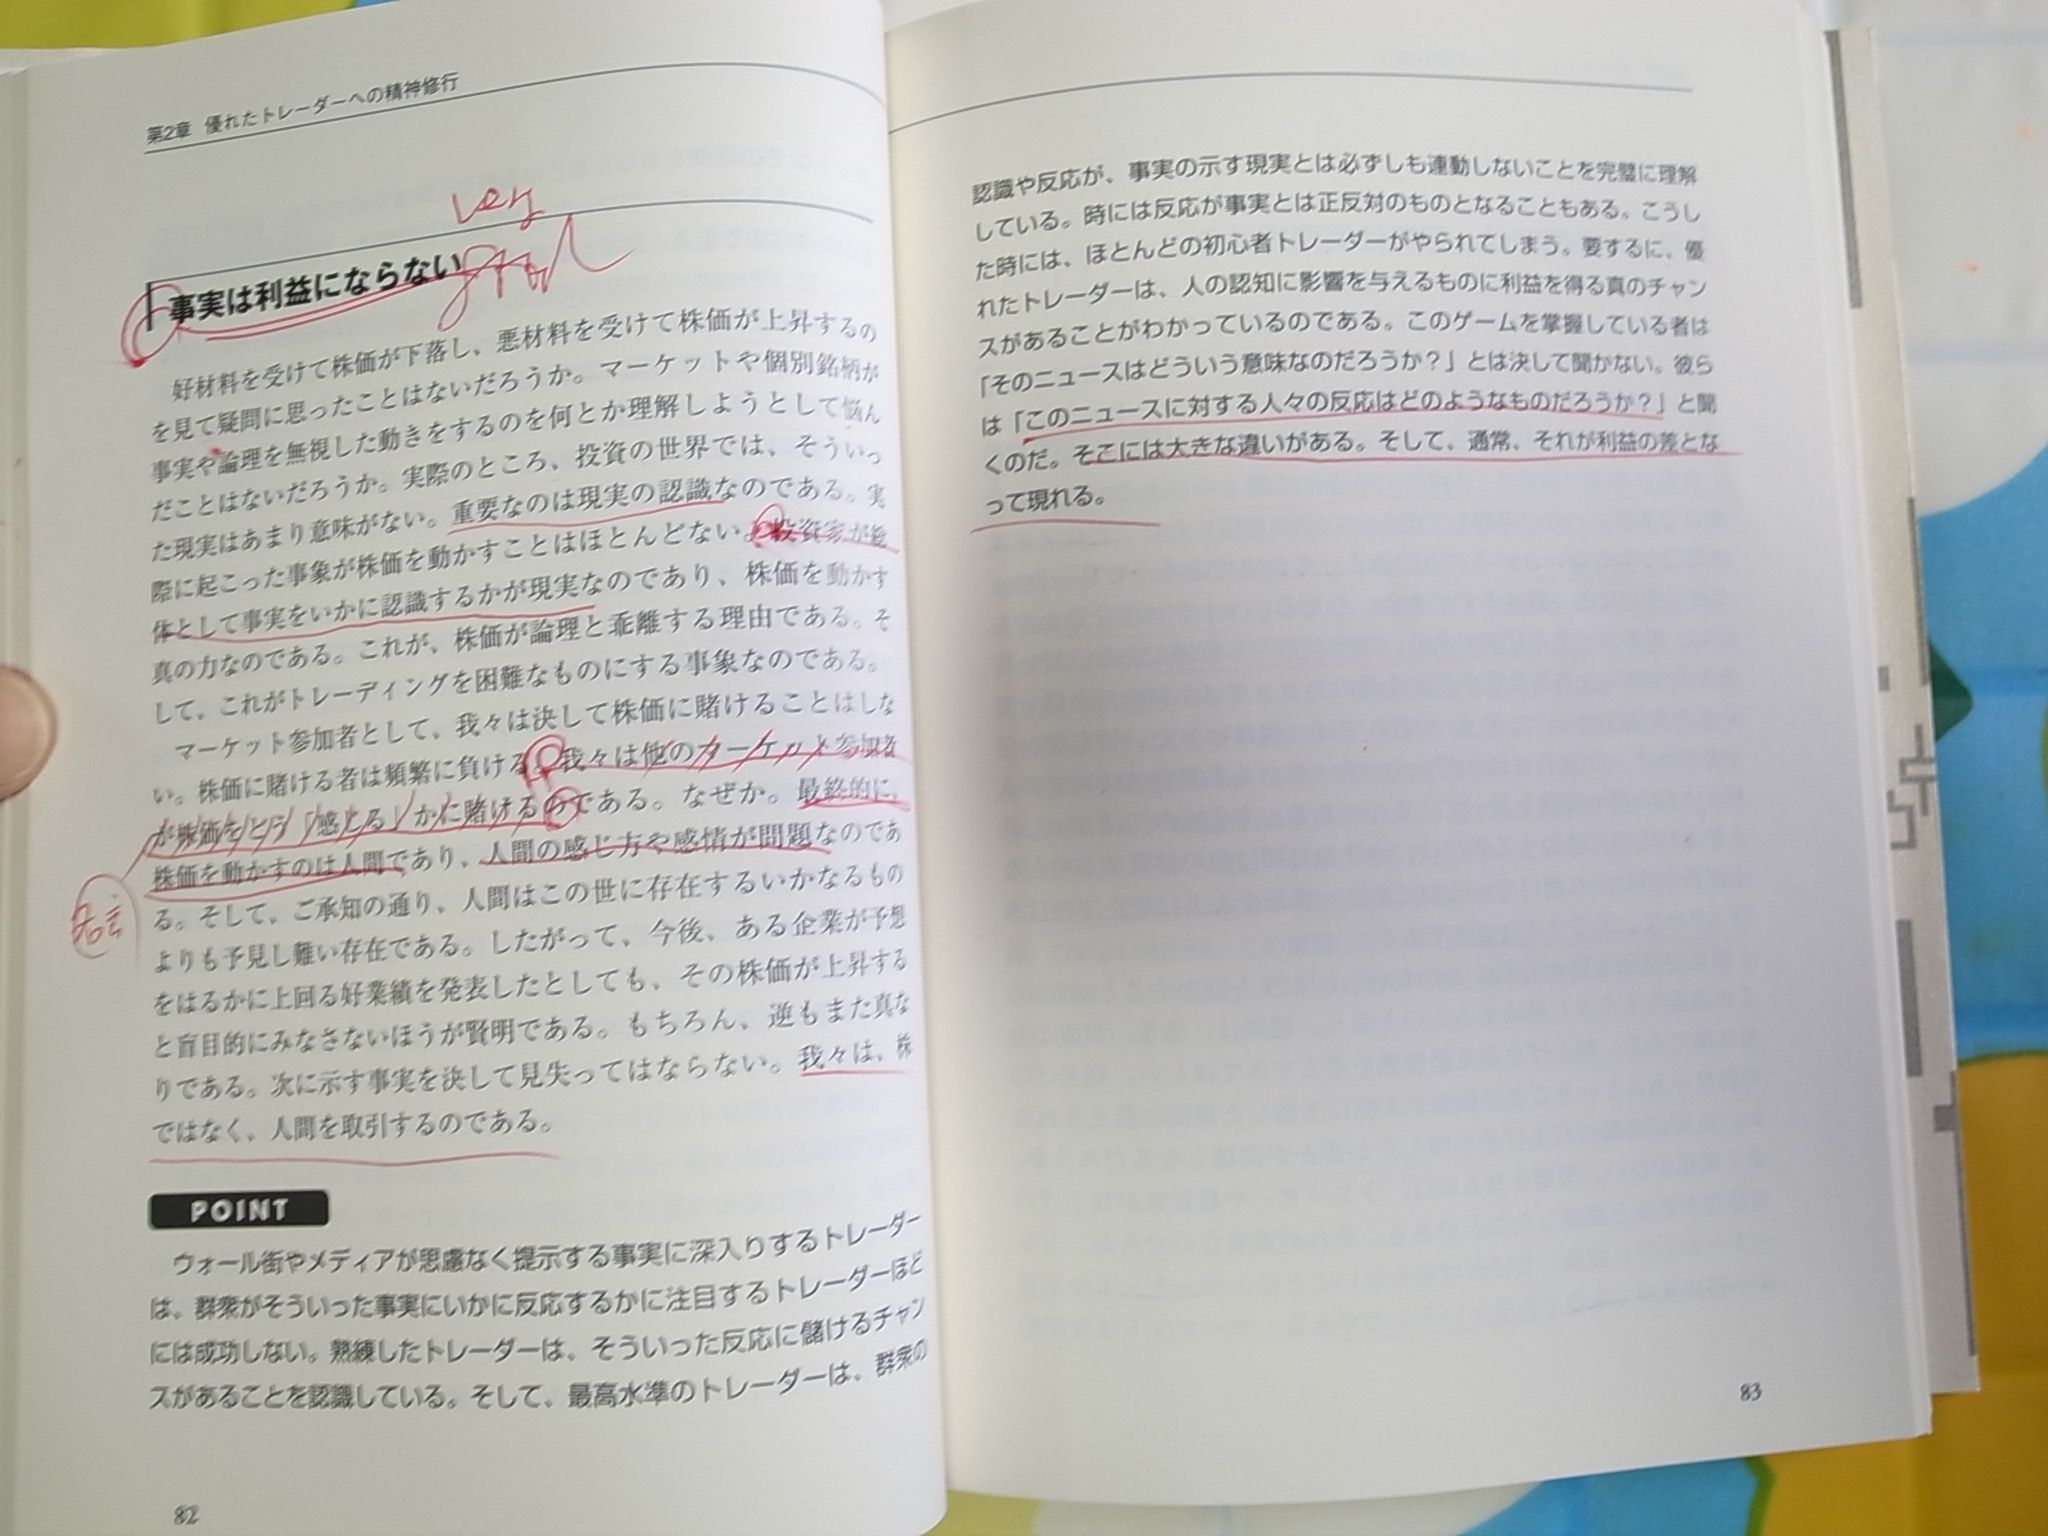 第2章 優れたトレーダーへの精神修行
very
good
事実は利益にならない
好材料を受けて株価が下落し、悪材料を受けて株価が上昇するの
を見て疑問に思ったことはないだろうか。マーケットや個別銘柄が
事実や論理を無視した動きをするのを何とか理解しようとして悩ん
だことはないだろうか。実際のところ、投資の世界では、そういっ
た現実はあまり意味がない。重要なのは現実の認識なのである。実
際に起こった事象が株価を動かすことはほとんどない。投資家が総
体として事実をいかに認識するかが現実なのであり、株価を動かす
真の力なのである。これが、株価が論理と乖離する理由である。そ
して、これがトレーディングを困難なものにする事象なのである。
マーケット参加者として、我々は決して株価に賭けることはしな
い。株価に賭ける者は頻繁に負ける。我々は他のマーケット参加者
が株価をどう「感じる」かに賭けるのである。なぜか。最終的に、
株価を動かすのは人間であり、人間の感じ方や感情が問題なのであ
る。そして、ご承知の通り、人間はこの世に存在するいかなるもの
よりも予見し難い存在である。したがって、今後、ある企業が予想
をはるかに上回る好業績を発表したとしても、その株価が上昇する
と盲目的にみなさないほうが賢明である。もちろん、逆もまた真な
りである。次に示す事実を決して見失ってはならない。我々は、株
ではなく、人間を取引するのである。
名言
POINT
ウォール街やメディアが思慮なく提示する事実に深入りするトレーダー
は、群衆がそういった事実にいかに反応するかに注目するトレーダーほど
には成功しない。熟練したトレーダーは、そういった反応に儲けるチャン
スがあることを認識している。そして、最高水準のトレーダーは、群衆の
82
認識や反応が、事実の示す現実とは必ずしも連動しないことを完璧に理解
している。時には反応が事実とは正反対のものとなることもある。こうし
た時には、ほとんどの初心者トレーダーがやられてしまう。要するに、優
れたトレーダーは、人の認知に影響を与えるものに利益を得る真のチャン
スがあることがわかっているのである。このゲームを掌握している者は
「そのニュースはどういう意味なのだろうか？」とは決して聞かない。彼ら
は「このニュースに対する人々の反応はどのようなものだろうか？」と聞
くのだ。そこには大きな違いがある。そして、通常、それが利益の差とな
って現れる。
83